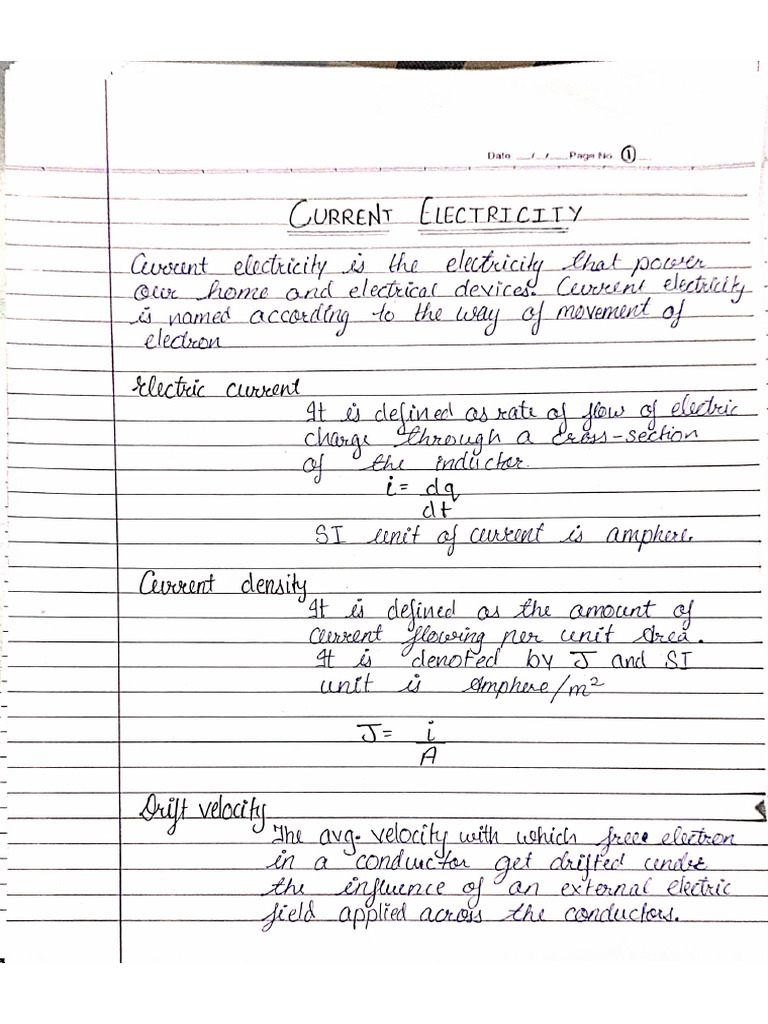 Date __/__/__ Page No. 1
CURRENT ELECTRICITY
Current electricity is the electricity that power
our home and electrical devices. Current electricity
is named according to the way of movement of
electron
Electric current
It is defined as rate of flow of electric
charge through a cross-section
of the inductor.
i = dq
dt
SI unit of current is amphere.
Current density
It is defined as the amount of
current flowing per unit Area.
It is denoted by J and SI
unit is Amphere/m²
J = i
A
Drift velocity
The avg. velocity with which free electron
in a conductor get drifted under
the influence of an external electric
field applied across the conductors.